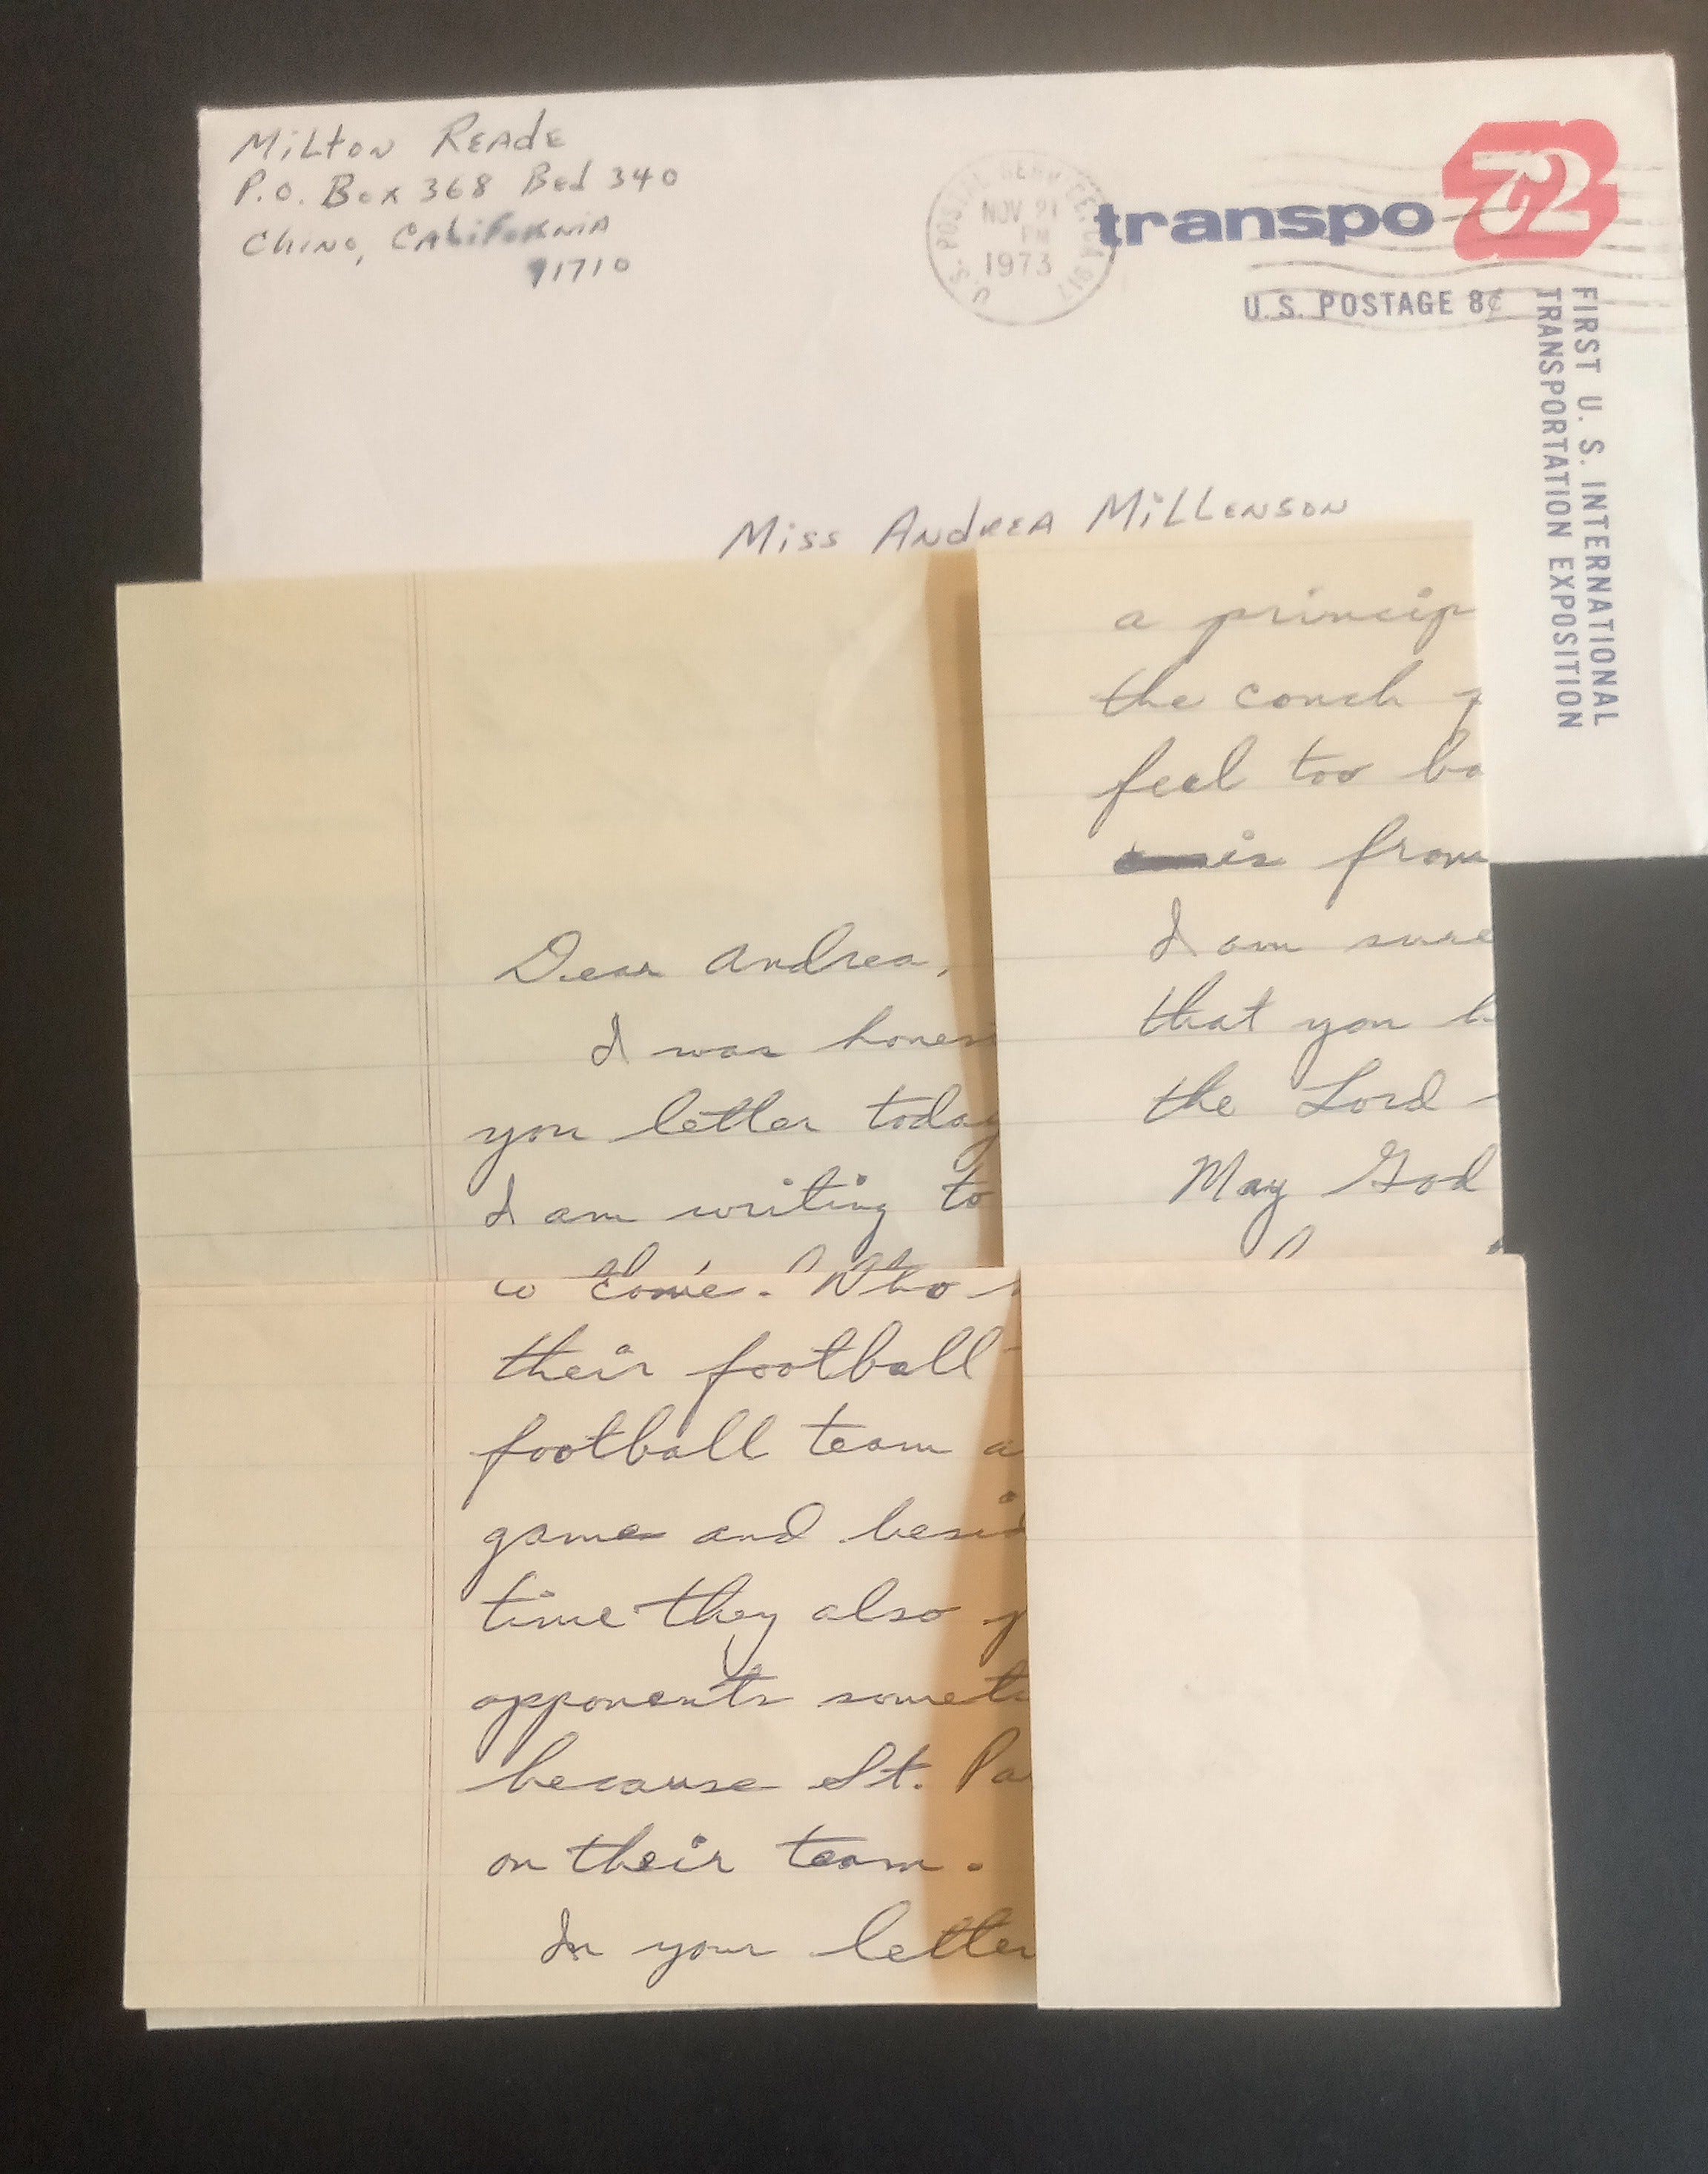 Milton Reade
P.O. Box 368 Bed 340
Chino, California
91710
U.S. POSTAL SERVICE, CA 917
NOV 21
PM
1973
transpo 72
U.S. POSTAGE 8¢
FIRST U. S. INTERNATIONAL
TRANSPORTATION EXPOSITION
Miss Andrea Millenson
Dear Andrea,
I was hones
you letter today
I am writing to
to come. Who
their football
football team a
game and besid
time they also p
opponents someti
because St. Pa
on their team.
In your letter
a princip
the couch
feel too ba
is from
I am sure
that you h
the Lord
May God